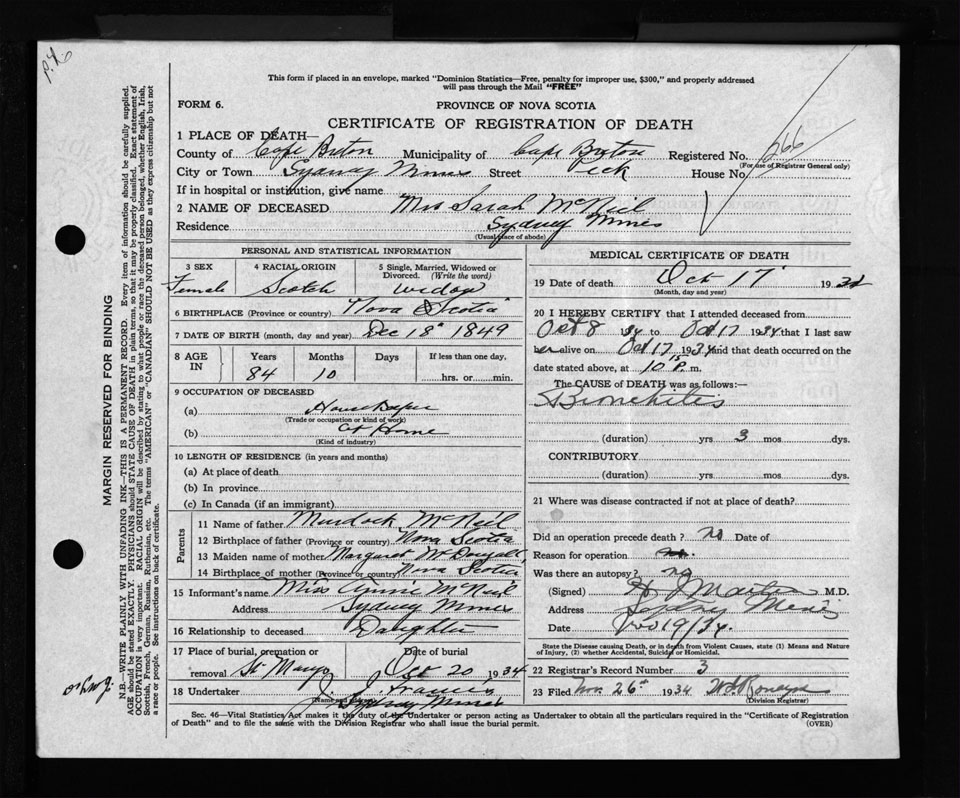 This form if placed in an envelope, marked "Dominion Statistics—Free, penalty for improper use, $300," and properly addressed
will pass through the Mail "FREE"
FORM 6.
PROVINCE OF NOVA SCOTIA
CERTIFICATE OF REGISTRATION OF DEATH
1 PLACE OF DEATH—
County of Cape Breton Municipality of Cape Breton Registered No. 266
(For use of Registrar General only)
City or Town Sydney Mines Street Peck House No.
If in hospital or institution, give name
2 NAME OF DECEASED Mrs Sarah McNeil
Residence Sydney Mines
(Usual place of abode)
PERSONAL AND STATISTICAL INFORMATION
3 SEX Female
4 RACIAL ORIGIN Scotch
5 Single, Married, Widowed or
Divorced. (Write the word)
widow
6 BIRTHPLACE (Province or country) Nova Scotia
7 DATE OF BIRTH (month, day and year) Dec 18" 1849
8 AGE IN Years Months Days If less than one day,
84 10 hrs. or min.
9 OCCUPATION OF DECEASED
(a) House Keeper
(Trade or occupation or kind of work)
(b) At Home
(Kind of industry)
10 LENGTH OF RESIDENCE (in years and months)
(a) At place of death
(b) In province
(c) In Canada (if an immigrant)
Parents
11 Name of father Murdock McNeil
12 Birthplace of father (Province or country) Nova Scotia
13 Maiden name of mother Margaret McDougall
14 Birthplace of mother (Province or country) Nova Scotia
15 Informant's name Miss Annie McNeil
Address Sydney Mines
16 Relationship to deceased Daughter
17 Place of burial, cremation or Date of burial
removal St. Marys Oct 20 1934
18 Undertaker J. J. Francis
(Name and place)
Sydney Mines
MEDICAL CERTIFICATE OF DEATH
19 Date of death Oct 17 1934
(Month, day and year)
20 I HEREBY CERTIFY that I attended deceased from
Oct 8 34 to Oct 17 1934 that I last saw
her alive on Oct 17 1934 and that death occurred on the
date stated above, at 10 15 P.m.
The CAUSE of DEATH was as follows:—
Bronchites
(duration) yrs 3 mos dys.
CONTRIBUTORY
(duration) yrs mos dys.
21 Where was disease contracted if not at place of death?
Did an operation precede death? no Date of
Reason for operation no.
Was there an autopsy? no
(Signed) M.D.
Address Sydney Mines
Date Nov 19/34.
State the Disease causing Death, or in death from Violent Causes, state (1) Means and Nature
of Injury, (2) whether Accidental, Suicidal or Homicidal.
22 Registrar's Record Number 3
23 Filed Nov. 26th 1934
(Division Registrar)
Sec. 46—Vital Statistics Act makes it the duty of the Undertaker or person acting as Undertaker to obtain all the particulars required in the "Certificate of Registration
of Death" and to file the same with the Division Registrar who shall issue the burial permit. (OVER)
MARGIN RESERVED FOR BINDING
N.B.—WRITE PLAINLY WITH UNFADING INK—THIS IS A PERMANENT RECORD. Every item of information should be carefully supplied.
AGE should be stated EXACTLY. PHYSICIANS should STATE CAUSE OF DEATH in plain terms, so that it may be properly classified. Exact statement of
OCCUPATION is very important. RACIAL ORIGIN will be described by stating to what people or race this deceased person belonged, whether English, Irish,
Scottish, French, German, Russian, Ruthenian, etc. The terms "AMERICAN" or "CANADIAN" SHOULD NOT BE USED as they express citizenship but not
a race or people. See instructions on back of certificate.